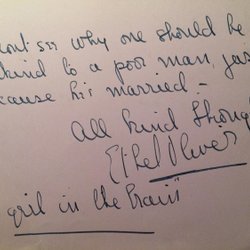 dont see why one should be
kind to a poor man, jas
ecause his married. —
all kind though
Ethel Oliver
girl in the train"